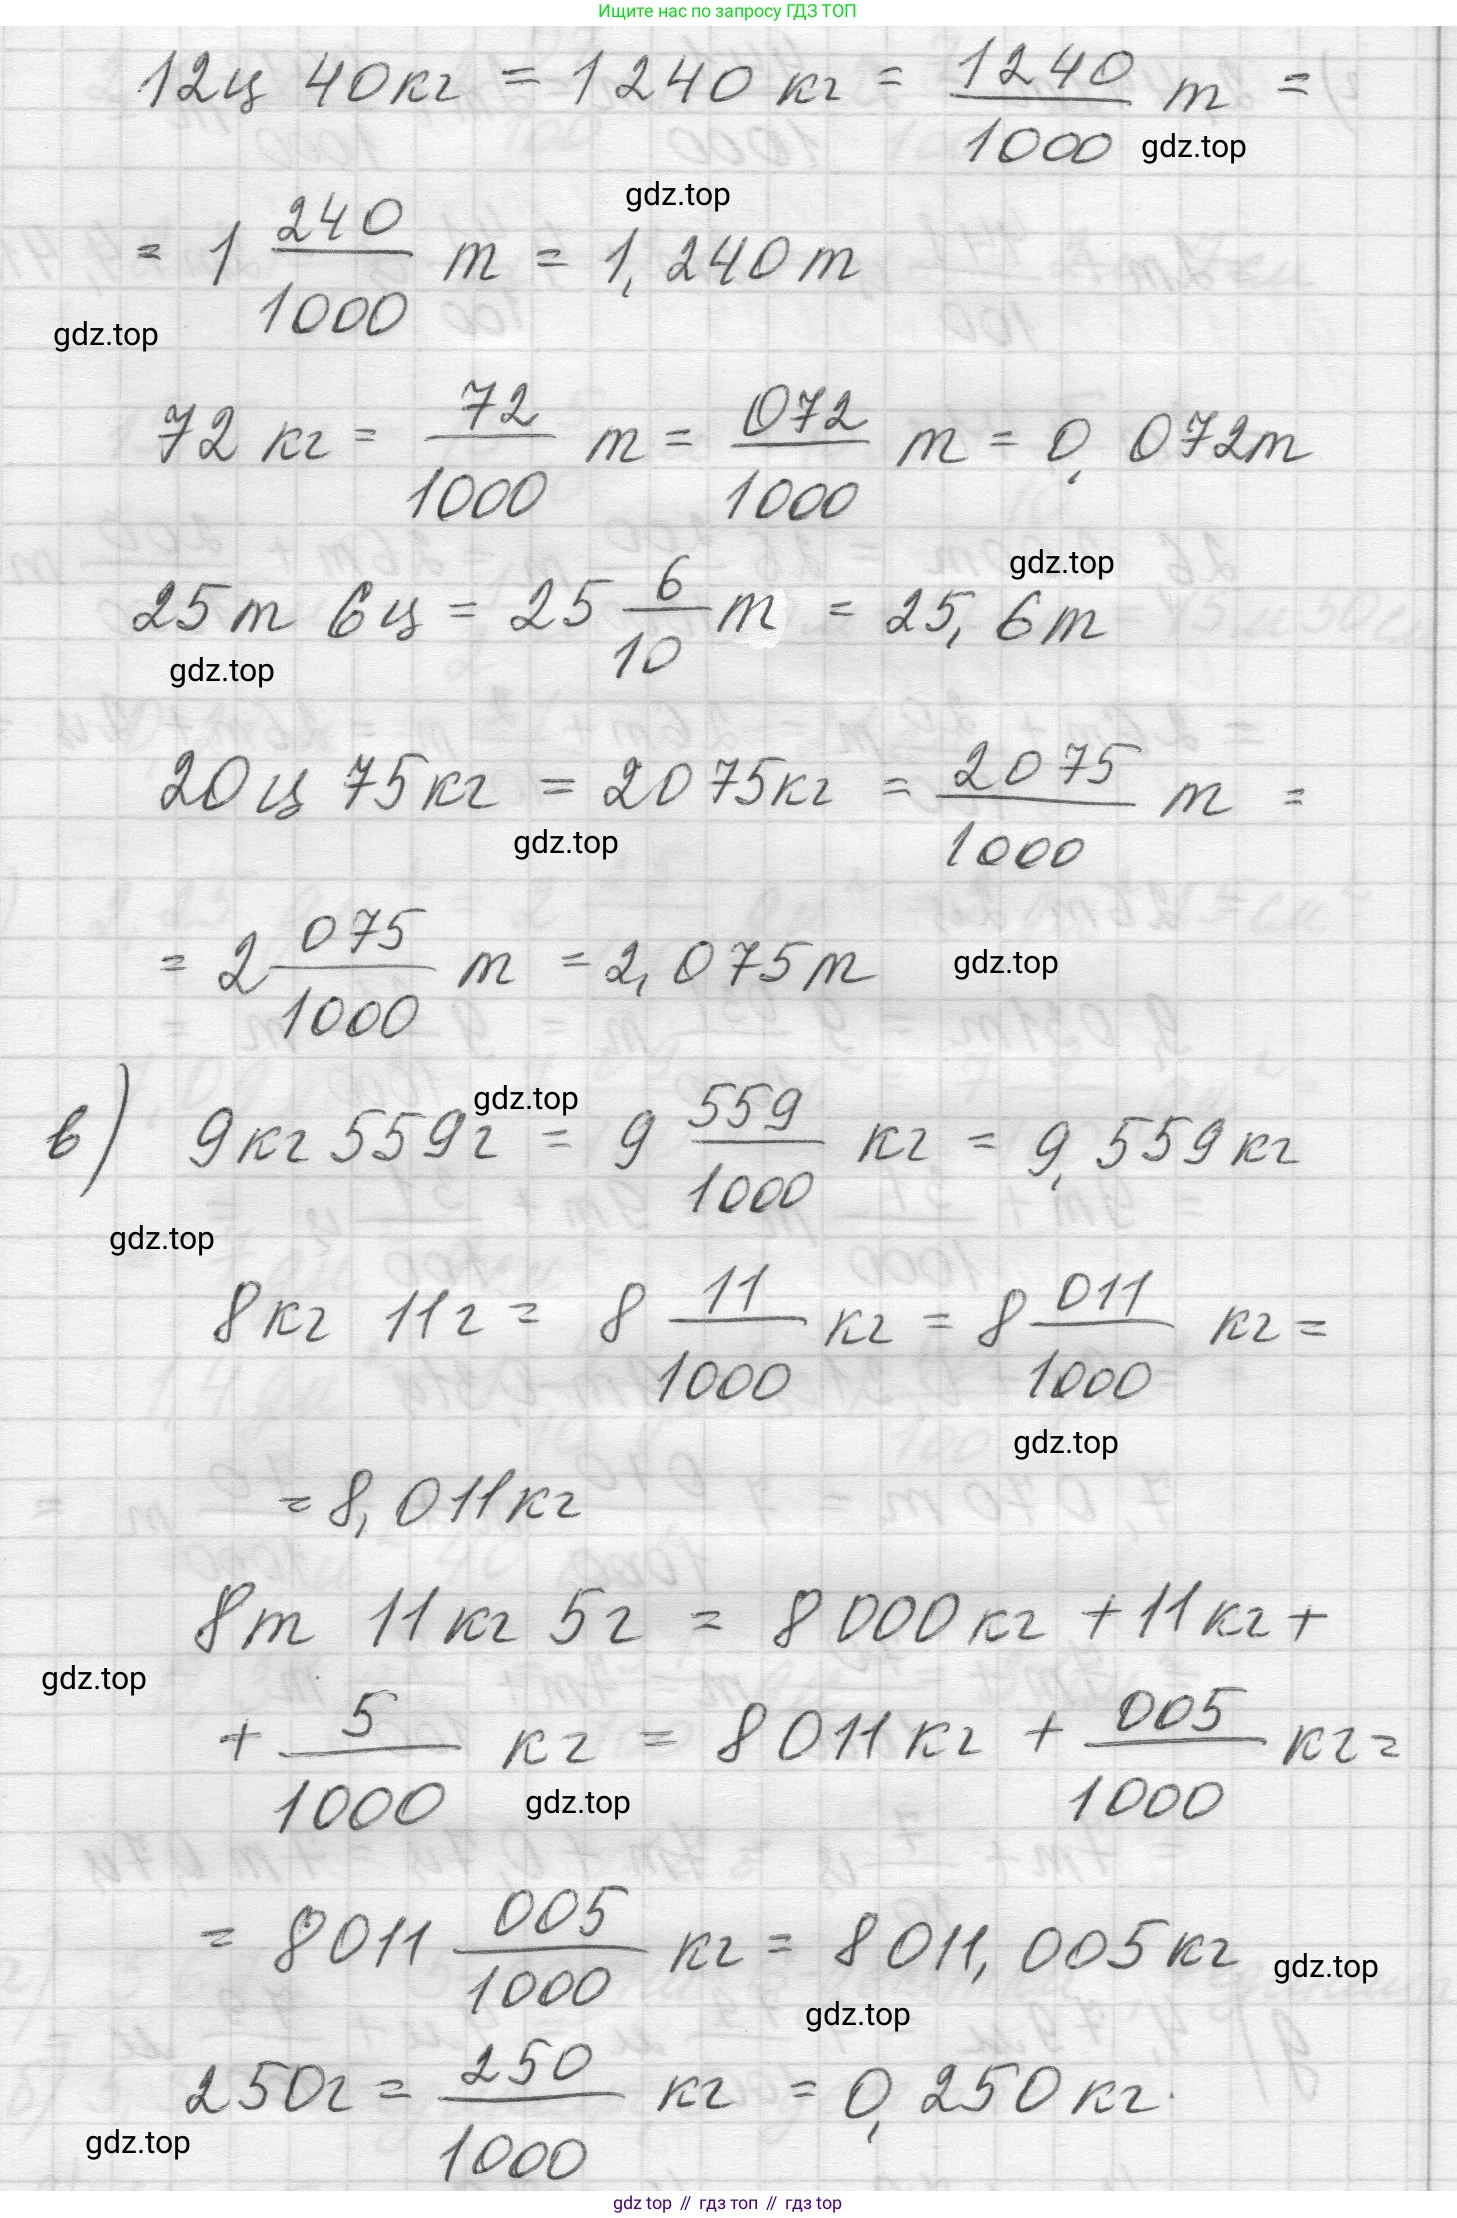 Ищите нас по запросу ГДЗ ТОП
12ц 40кг = 1240 кг = 1240/1000 т =
gdz.top
gdz.top
= 1 240/1000 т = 1,240 т
gdz.top
72 кг = 72/1000 т = 072/1000 т = 0,072т
gdz.top
25т 6ц = 25 6/10 т = 25,6т
gdz.top
20ц 75кг = 2075кг = 2075/1000 т =
gdz.top
= 2 075/1000 т = 2,075т
gdz.top
gdz.top
в) 9кг 559г = 9 559/1000 кг = 9,559кг
gdz.top
8кг 11г = 8 11/1000 кг = 8 011/1000 кг =
gdz.top
= 8,011кг
8т 11кг 5г = 8000кг + 11кг +
gdz.top
+ 5/1000 кг = 8011кг + 005/1000 кг =
gdz.top
= 8011 005/1000 кг = 8011,005кг
gdz.top
gdz.top
250г = 250/1000 кг = 0,250кг.
gdz.top
gdz top // гдз топ // гдз top